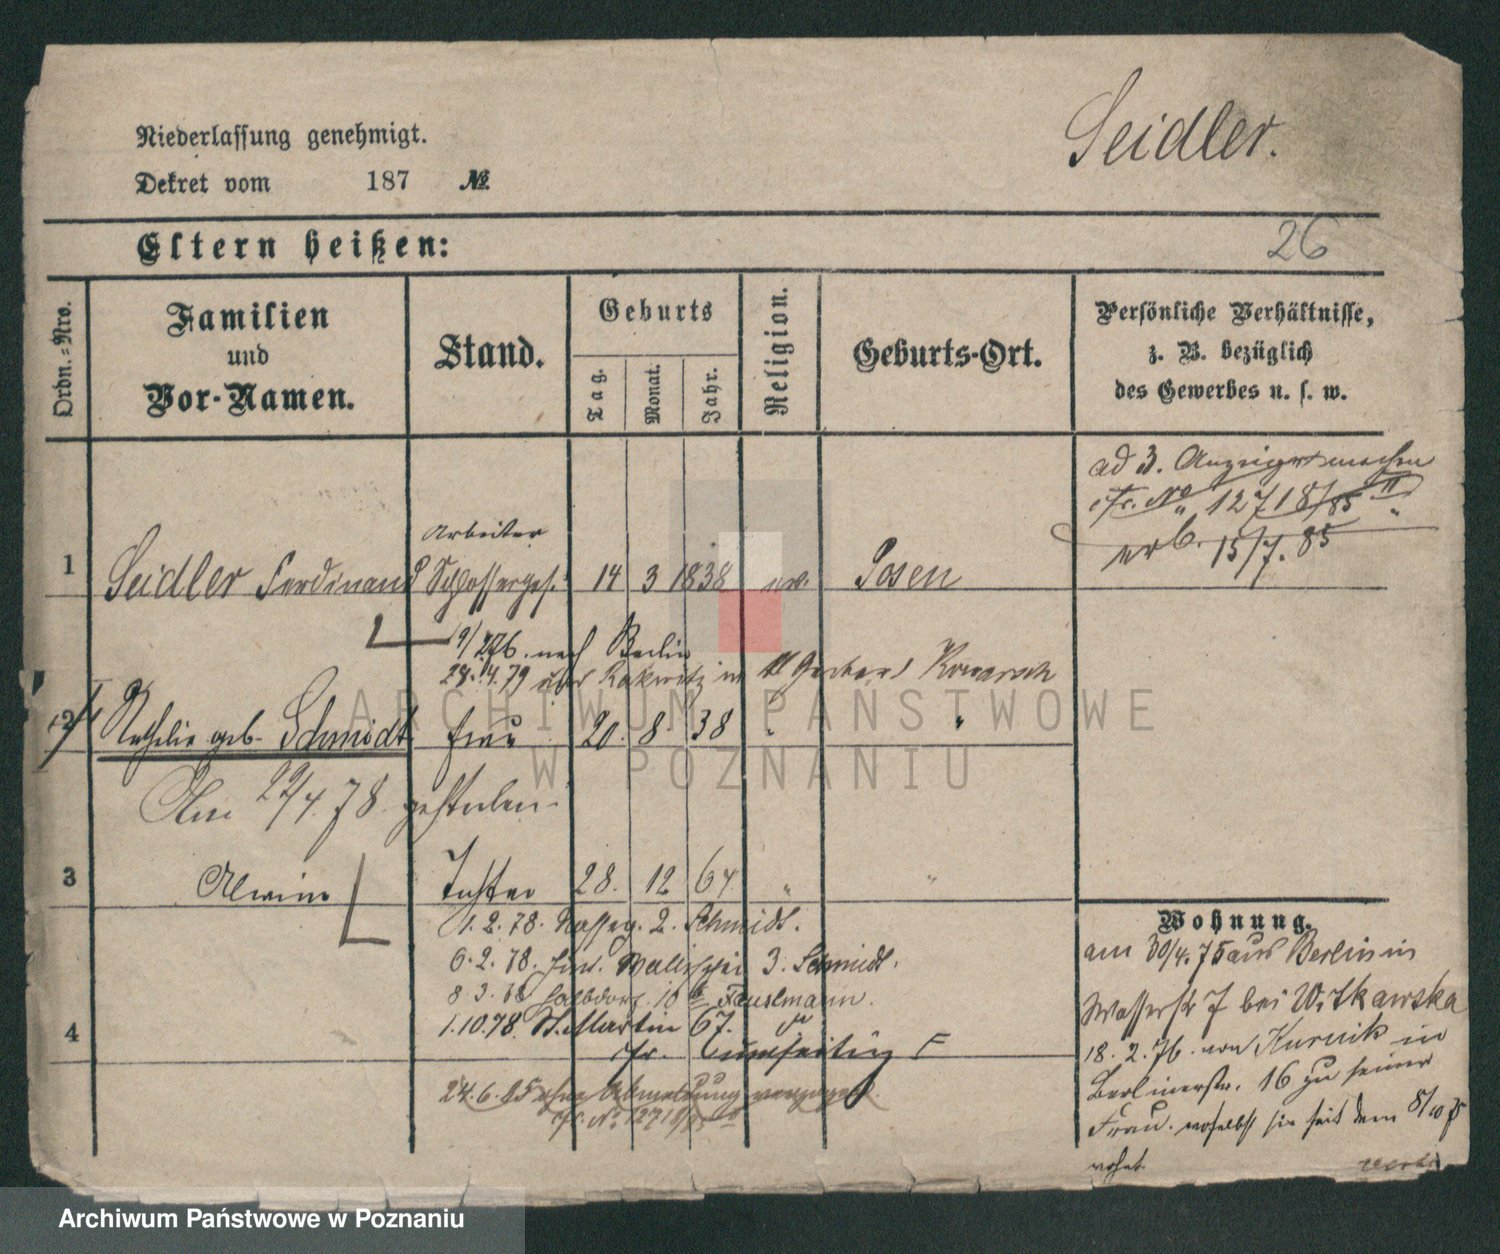 Seidler.
Niederlassung genehmigt.
Dekret vom 187 №
Eltern heißen:
26
Ordn.=Nro.
Familien
und
Vor-Namen.
Stand.
Geburts
Tag.
Monat.
Jahr.
Religion.
Geburts-Ort.
Persönliche Verhältnisse,
z. B. bezüglich
des Gewerbes u. s. w.
ad 3. Anzeige machen
cfr. No 12718/85 II
erl. 15/7. 85
Arbeiter
1 Seidler Ferdinand Schlosserges. 14 3 1838 ev. Posen
nach Berlin
28. 4. 79 Rakwitz in
2 geb. Schmidt Frau 20. 8. 38 "
Am 29/4. 78 gestorben.
3 Alwine Tochter 28. 12 64 " "
1. 2. 78. 2. Schmidt.
6. 2. 78. Wallischei 3. Schmidt.
8 3. 78 Halbdorf. 16 b Faustmann.
4 1.10.78. St. Martin 67.
cfr. Umseitig F
24. 6. 85 ohne Abmeldung verzogen.
cfr. No 12718/85 II
Wohnung.
am 30/4. 75 aus Berlin in
Wasserstr 7 bei Witkawska
18. 2. 76. von Kurnik in
Berlinerstr. 16 zu seiner
Frau. woselbst sie seit dem 8/10 75
wohnt.
ARCHIWUM PAŃSTWOWE
W POZNANIU
Archiwum Państwowe w Poznaniu